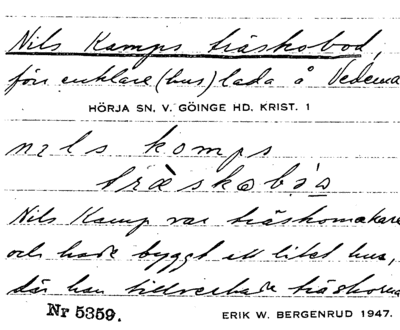 Nils Kamps träskobod,
förr enklare (hus) lada å Vedema
HÖRJA SN, V. GÖINGE HD. KRIST. 1
nils komps
träskobo̱a
Nils Kamp var träskomakare
och hade byggt ett litet hus,
där han tillverkade träskorna
Nr 5359.
ERIK W. BERGENRUD 1947.